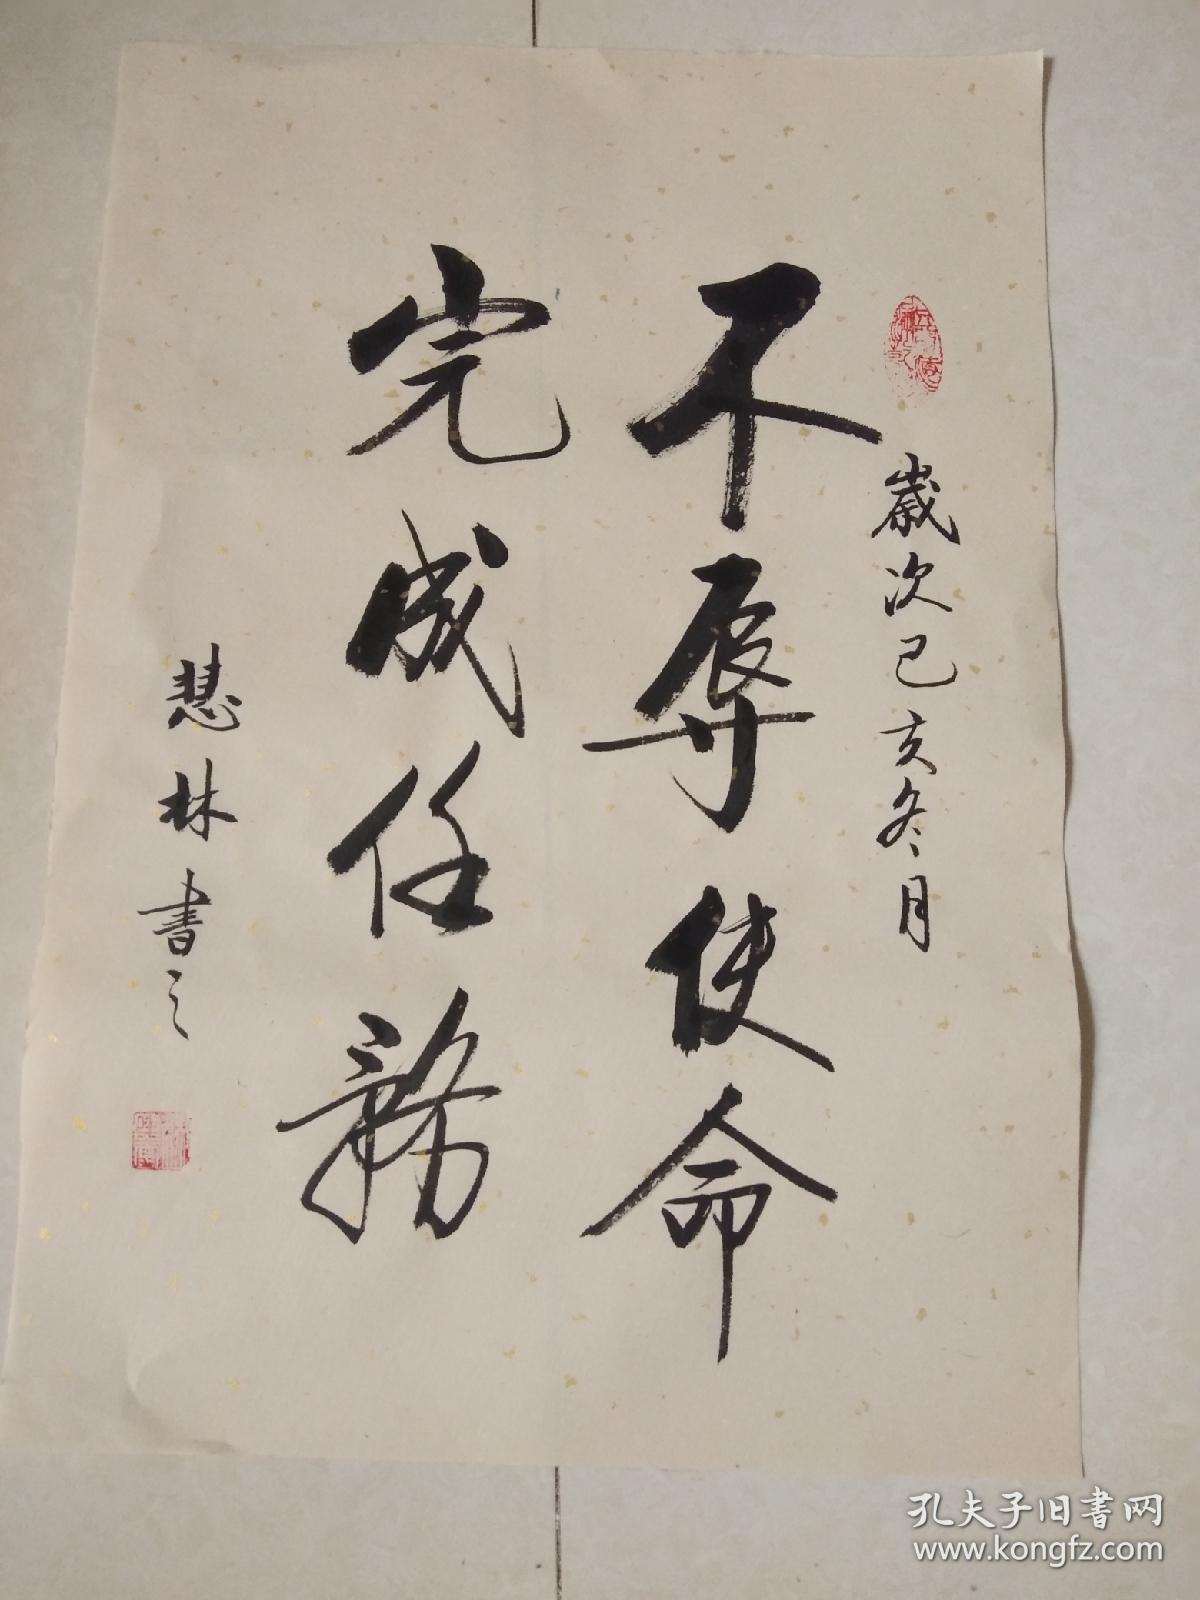 歲次己亥冬月
不辱使命
完成任務
慧林書之
孔夫子旧书网
www.kongfz.com